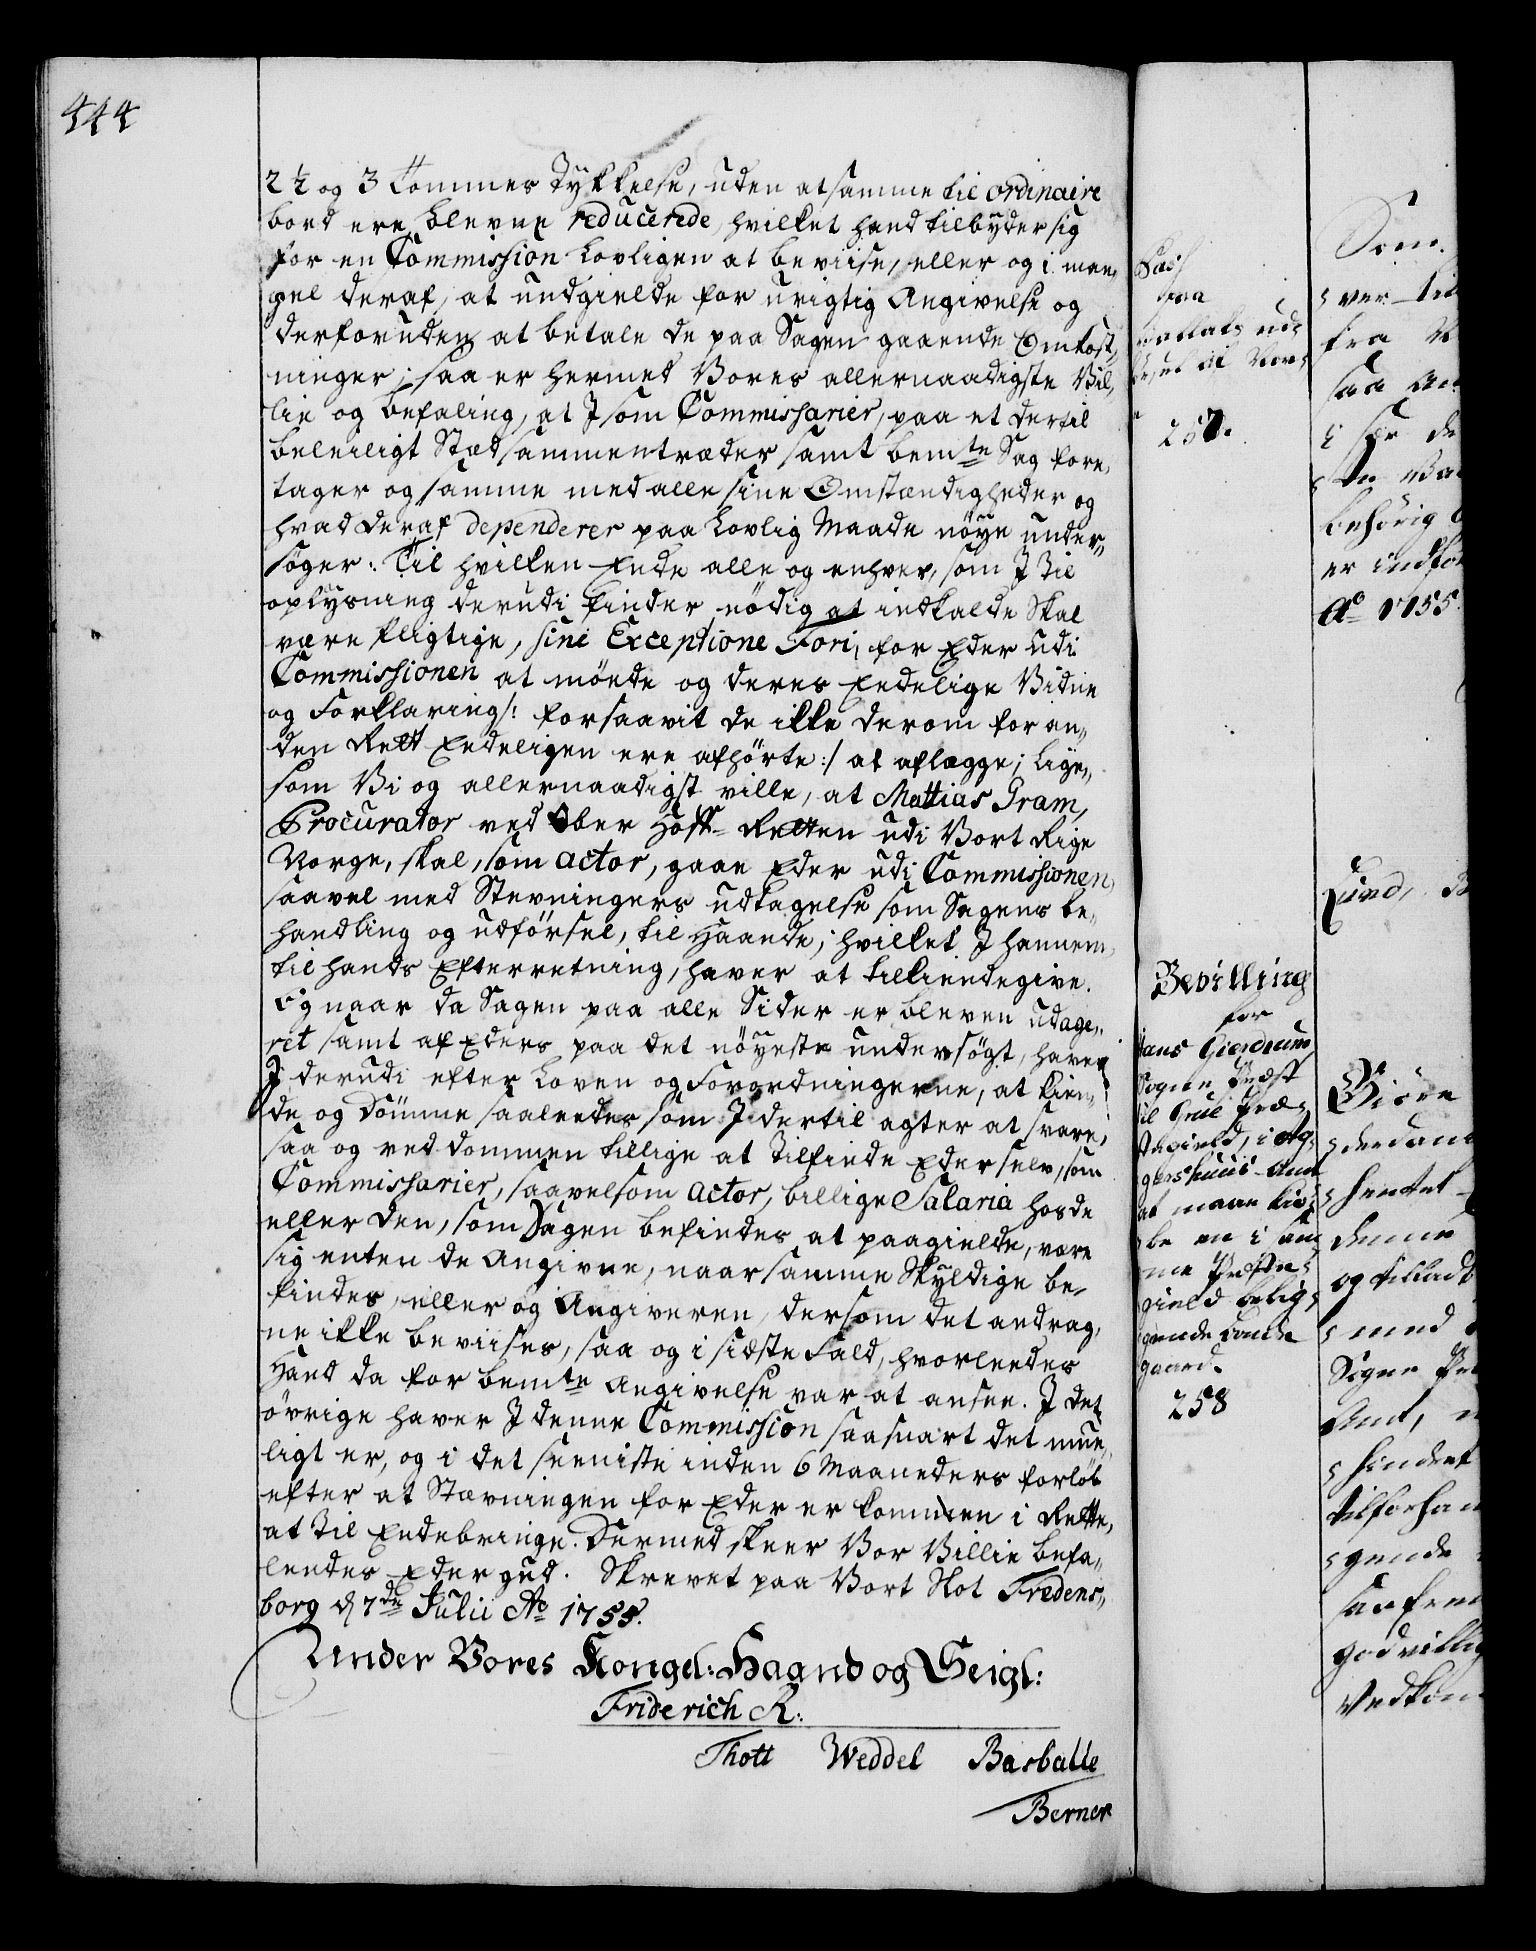 444
2½ og 3 Tommes Tÿkkelse, uden at samme til ordinaire
bord ere blevne reducerede, hvilket hand tilbyder sig
for en Commission Lovligen at beviise, eller og i man„
gel deraf, at undgielde for urigtig Angivelse og
derforuden at betale de paa Sagen gaaende Omkost„
ninger; saa er hermed Vores allernaadigste Vil„
lie og befaling, at J som Commissarier, paa et dertil
beleiligt Stæd sammentræder samt bemte Sag fore„
tager og samme med alle sine Omstændigheder og
hvad deraf dependerer paa Lovlig Maade nöye under„
söger: Til hvilken Ende alle og enhver, som J til
oplysning derudi finder nödig at indkalde skal
være pligtige, sine Exceptione Fori, for Eder udi
Commissionen at möede og deres Eedelige Vidne
og Forklaring /: forsaavit de ikke derom for an„
den Rett Eedeligen ere afhörte :/ at aflægge; Lige„
som Vi og allernaadigst ville, at Mattias Gram,
Procurator ved Ober Hoff-Retten udi Vort Rige
Norge, skal, som Actor, gaae Eder udi Commissionen,
saavel med Stevningers udtagelse som Sagens be„
handling og udförsel, til Haande; hvilket J hannem,
til hands Efterretning, haver at tilkiendegive.
Og naar da Sagen paa alle Sider er bleven udage„
ret samt af Eders paa det nöyeste undersögt, haver
J derudi efter Loven og Forordningerne, at kien„
de og Dömme saaledes som J dertil agter at svare,
saa og ved dommen tillige at Tilfinde Eder selv, som
Commissarier, saavelsom Actor, billige Salaria hos de
eller den, som Sagen befindes at paagielde, være
sig enten de Angivne, naar samme Skyldige be„
findes, eller og Angiveren, dersom det andrag„
ne ikke beviises, saa og i sidste Fald, hvorledes
Hand da for bemte Angivelse var at ansee. J det
övrige haver J denne Commission saasnart det mue„
ligt er, og i det seeniste inden 6 Maaneders forlöb
efter at Stævningen for Eder er kommen i Rette,
at til Endebringe. Dermed skeer Vor Villie befa„
lendes Eder gud. Skrevet paa Vort Slot Fredens„
borg d 7de Julii Ao 1755.
Under Vores Kongel: Haand og Seigl:
Friderich R:
Thott Weddel Basballe
Berner
Pass
paa
257.
Bevilling
for
Hans Gierdrum
Sogne Præst
til Grue Præ„
stegield, i Ag„
gershuus-Amt
at maae kiö„
be en i sam„
me Præste„
gield belig„
gende bonde
gaard.
258
Som
ver til
fra
saa
i sær de
behörig
er indför
Ao 1755.
Lund,
Giöre
hendet
denne
og tilladt
med
Sogne Præ
Amt,
hindert
gende
saafrem
godvillig
Vedkom